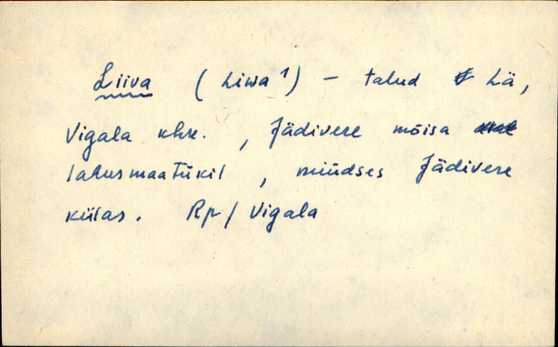 Liiva (Liwa¹) – talud Lä,
Vigala khk., Jädivere mõisa
lahusmaatükil, nüüdses Jädivere
külas. Rp/Vigala